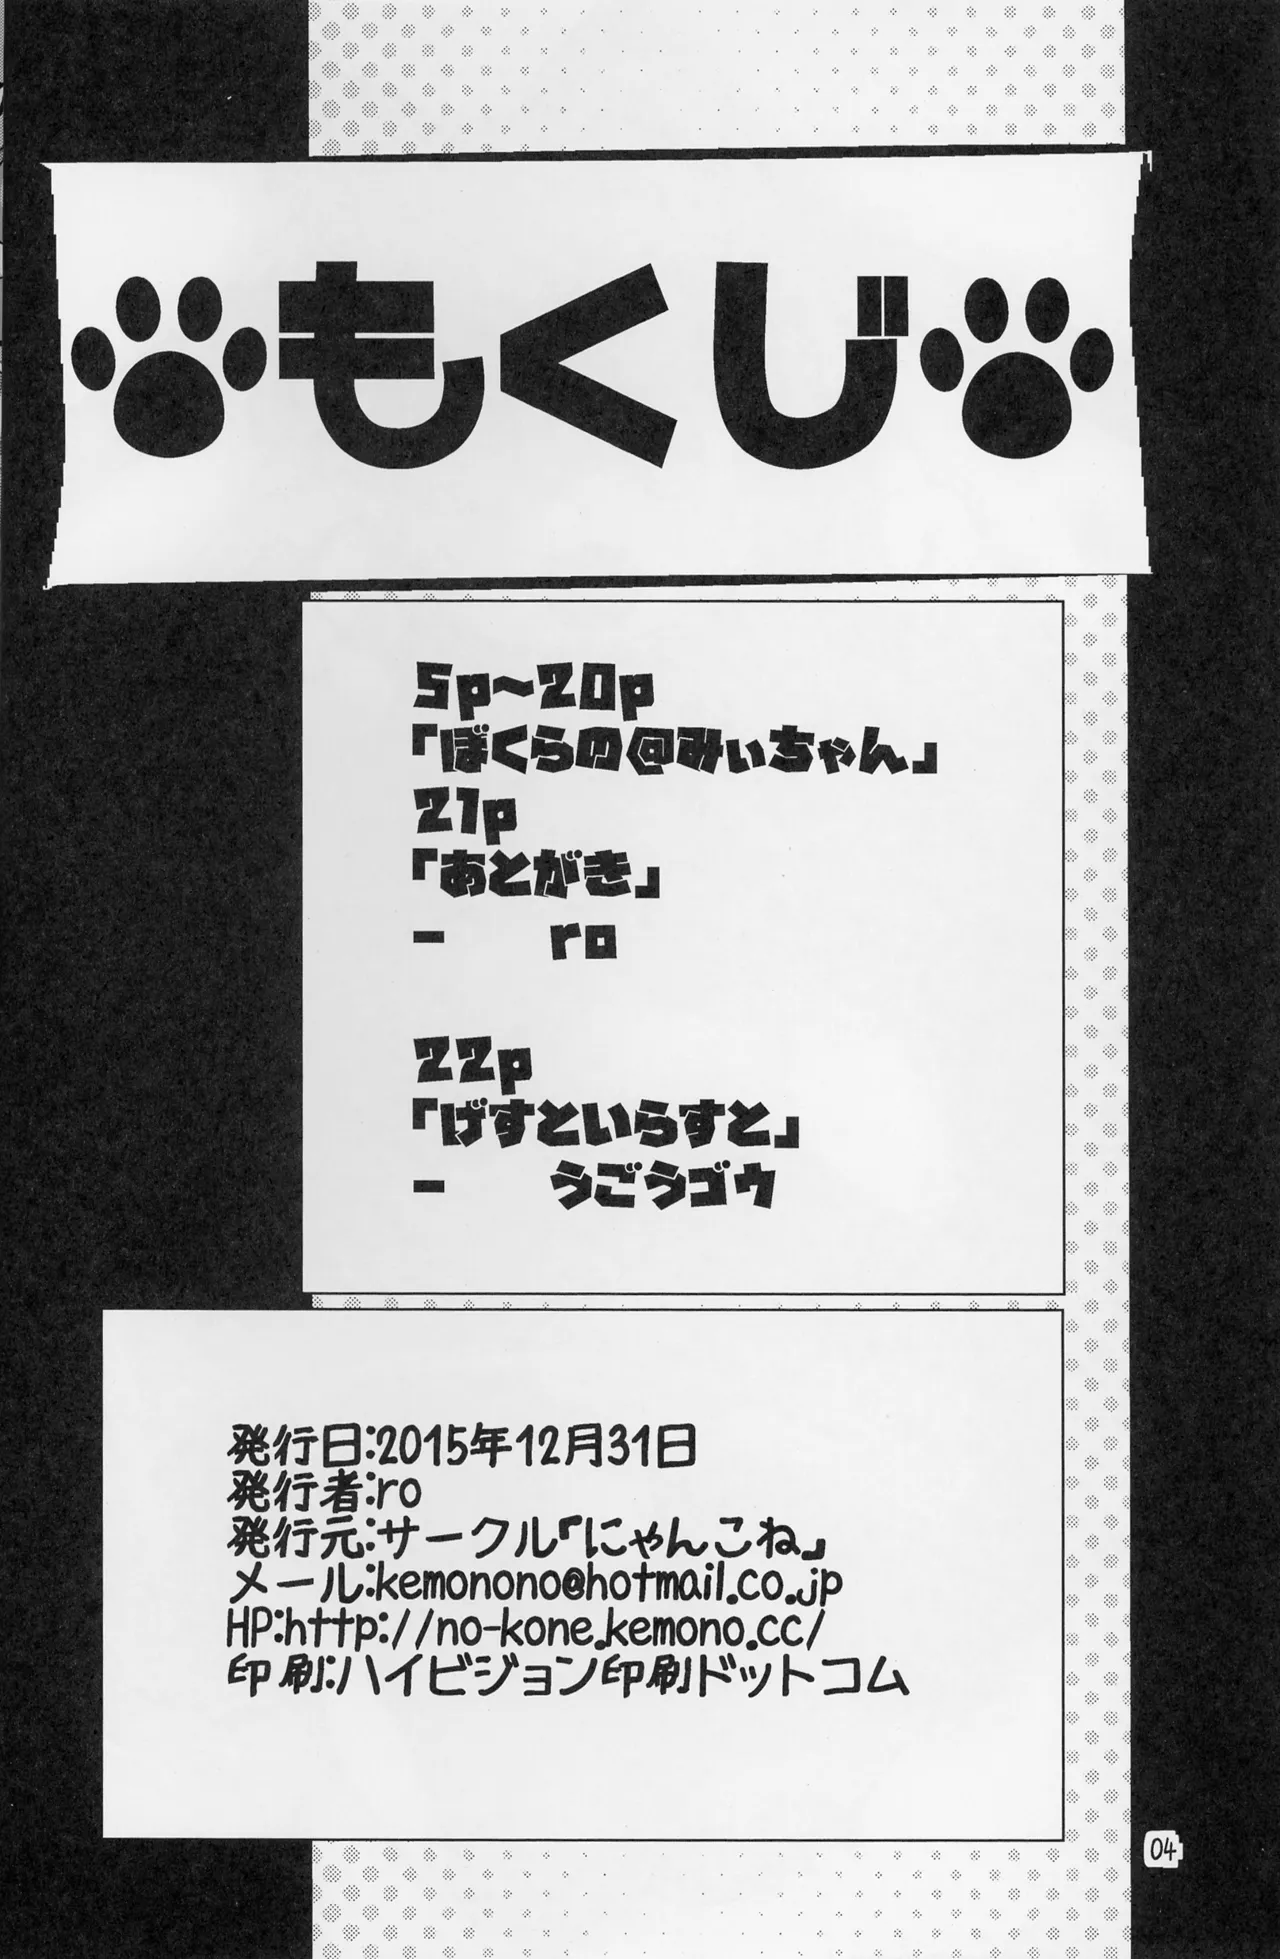 もくじ
5p〜20p
「ぼくらの@みぃちゃん」
21p
「あとがき」
- ro
22p
「げすといらすと」
- うごうゴウ
発行日:2015年12月31日
発行者:ro
発行元:サークル『にゃんこね』
メール:kemonono@hotmail.co.jp
HP:http://no-kone.kemono.cc/
印刷:ハイビジョン印刷ドットコム
04